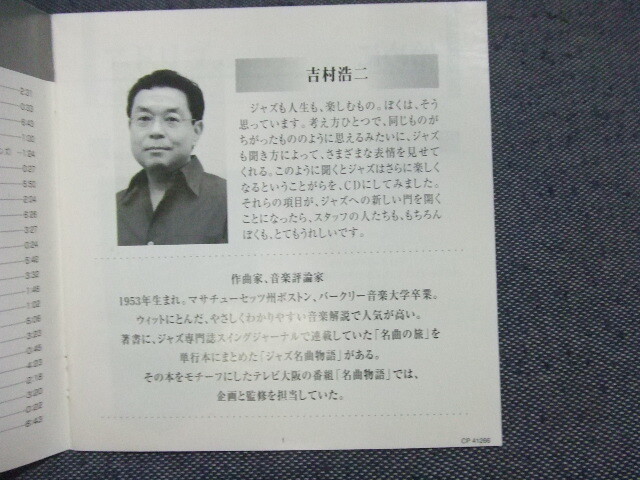 吉村浩二
ジャズも人生も、楽しむもの。ぼくは、そう
思っています。考え方ひとつで、同じものが
ちがったもののように思えるみたいに、ジャズ
も聞き方によって、さまざまな表情を見せて
くれる。このように聞くとジャズはさらに楽しく
なるということがらを、CDにしてみました。
それらの項目が、ジャズへの新しい門を開く
ことになったら、スタッフの人たちも、もちろん
ぼくも、とてもうれしいです。
作曲家、音楽評論家
1953年生まれ。マサチューセッツ州ボストン、バークリー音楽大学卒業。
ウィットにとんだ、やさしくわかりやすい音楽解説で人気が高い。
著書に、ジャズ専門誌スイングジャーナルで連載していた「名曲の旅」を
単行本にまとめた「ジャズ名曲物語」がある。
その本をモチーフにしたテレビ大阪の番組「名曲物語」では、
企画と監修を担当していた。
1